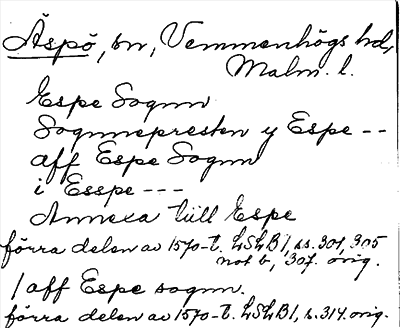 Äspö, sn, Vemmenhögs hd,
Malm. l.
Espe Sognn
Sognnepresten y Espe --
aff Espe Sognn
i Esspe ---
Annexa till Espe
förra delen av 1570-t. LSLB1, ss. 301, 305
not b, 307. orig.
/ aff Espe sognn.
förra delen av 1570-t. LSLB1, s. 314. orig.